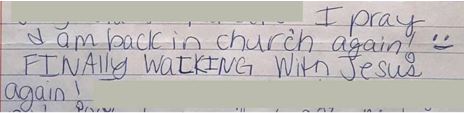 I pray
I am back in church again! :)
FINAlly WalKING With Jesus
again!